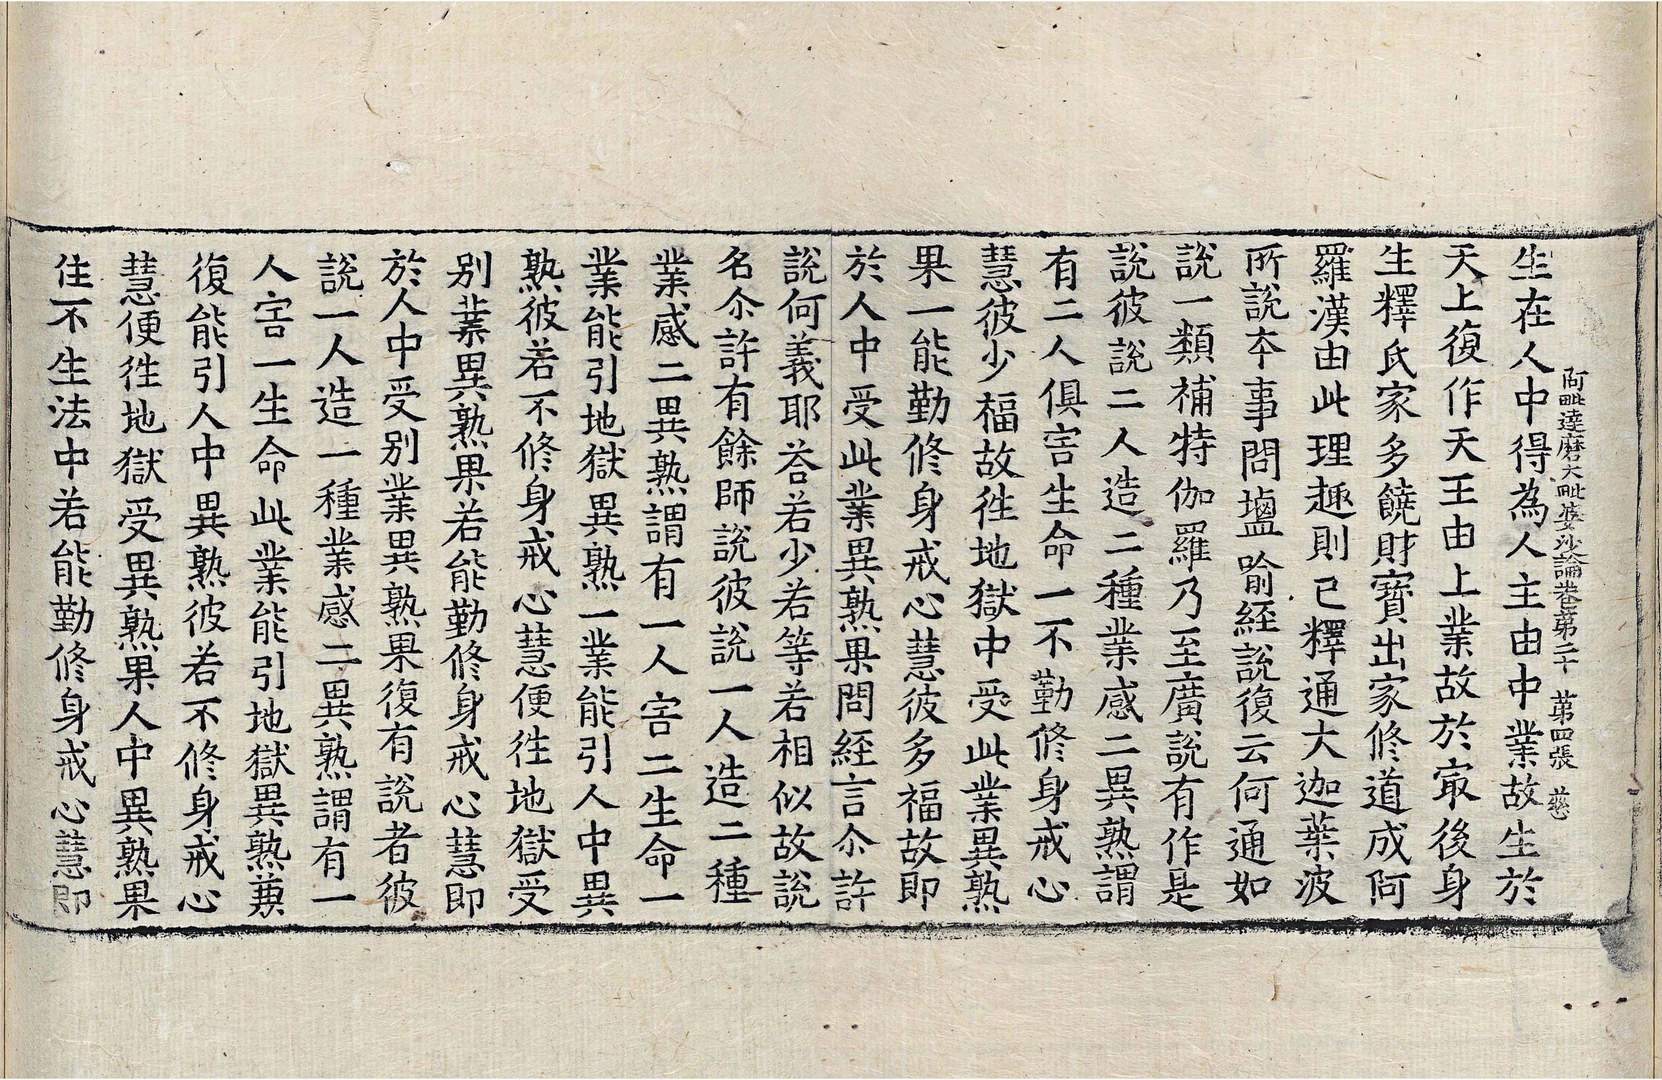 阿毗達磨大毗婆沙論卷第二十　第四張　慈
生在人中得為人主由中業故生於
天上復作天王由上業故於㝡後身
生釋氏家多饒財寶出家修道成阿
羅漢由此理趣則已釋通大迦葉波
所說本事問塩喻經說復云何通如
說一類補特伽羅乃至廣說有作是
說彼說二人造二種業感二異熟謂
有二人俱害生命一不勤修身戒心
慧彼少福故徃地獄中受此業異熟
果一能勤修身戒心慧彼多福故即
於人中受此業異熟果問經言尒許
說何義耶荅若少若等若相似故說
名尒許有餘師說彼說一人造二種
業感二異熟謂有一人害二生命一
業能引地獄異熟一業能引人中異
熟彼若不修身戒心慧便徃地獄受
別業異熟果若能勤修身戒心慧即
於人中受別業異熟果復有說者彼
說一人造一種業感二異熟謂有一
人害一生命此業能引地獄異熟兼
復能引人中異熟彼若不修身戒心
慧便徃地獄受異熟果人中異熟果
住不生法中若能勤修身戒心慧即